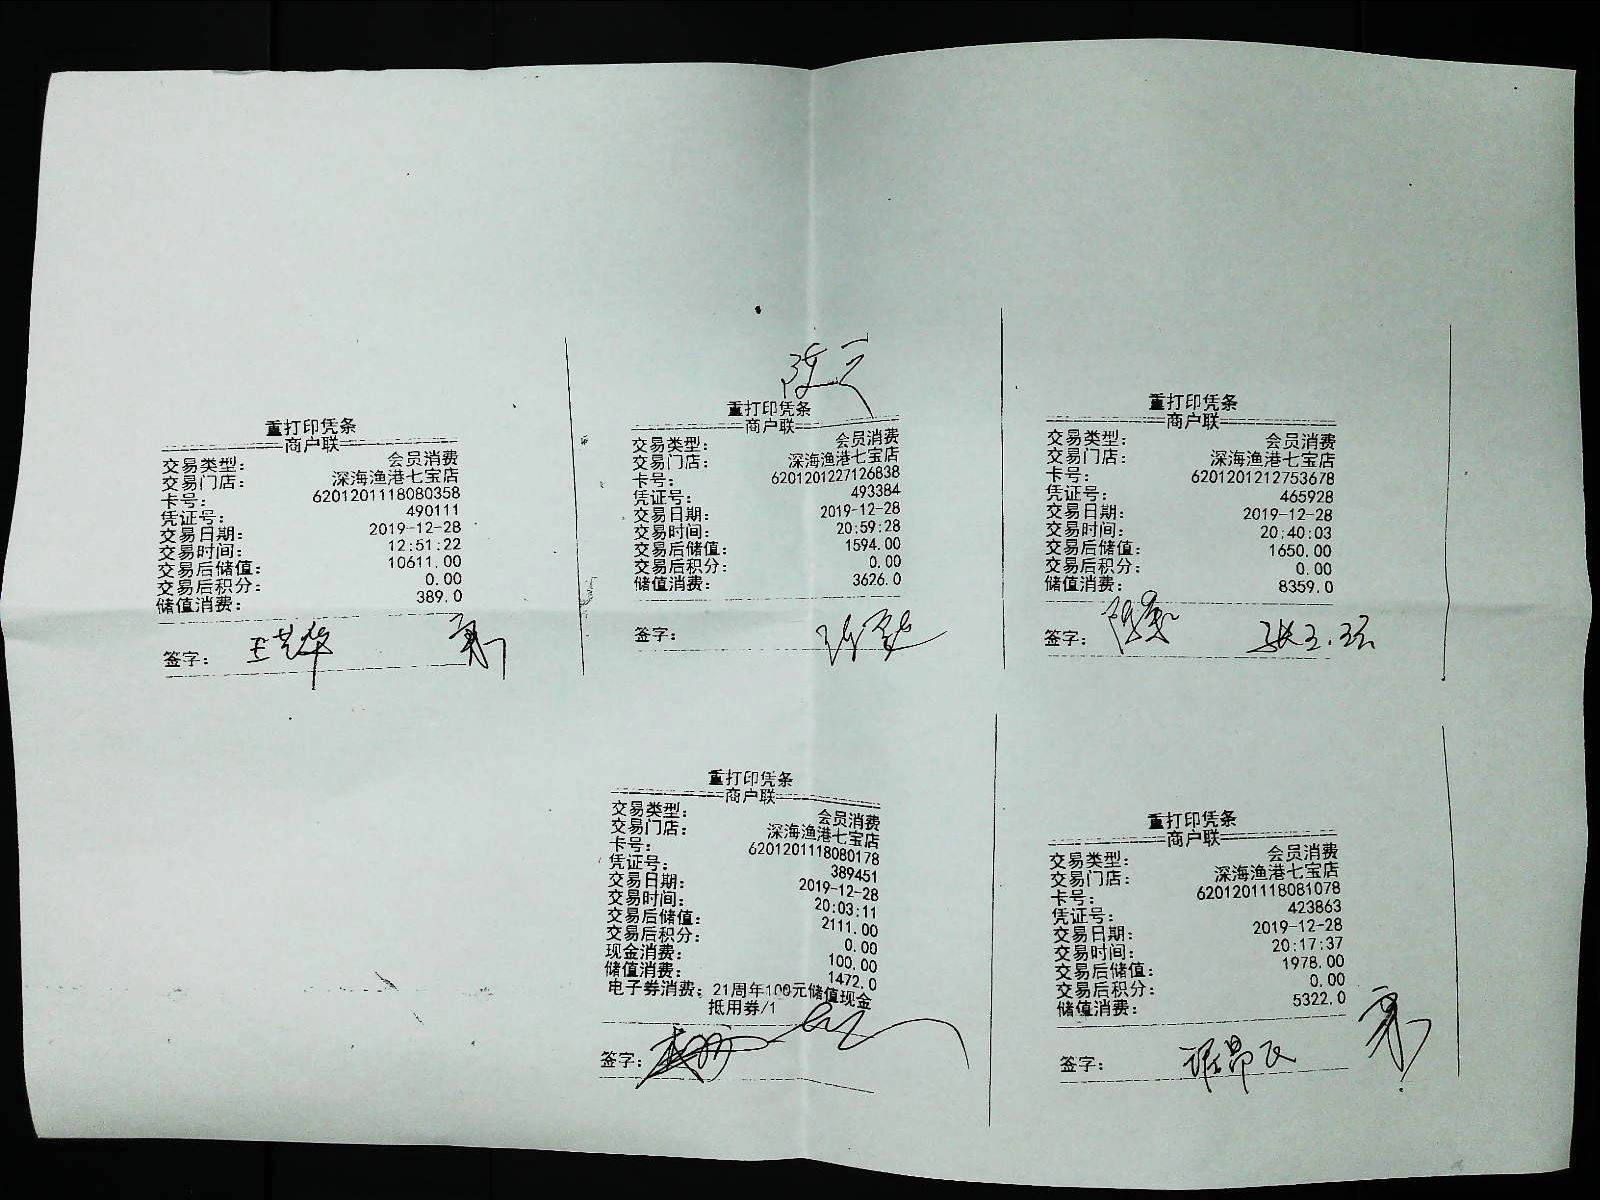 重打印凭条
商户联
交易类型: 会员消费
交易门店: 深海渔港七宝店
卡号: 6201201118080358
凭证号: 490111
交易日期: 2019-12-28
交易时间: 12:51:22
交易后储值: 10611.00
交易后积分: 0.00
储值消费: 389.0
签字:
重打印凭条
商户联
交易类型: 会员消费
交易门店: 深海渔港七宝店
卡号: 6201201227126838
凭证号: 493384
交易日期: 2019-12-28
交易时间: 20:59:28
交易后储值: 1594.00
交易后积分: 0.00
储值消费: 3626.0
签字:
重打印凭条
商户联
交易类型: 会员消费
交易门店: 深海渔港七宝店
卡号: 6201201212753678
凭证号: 465928
交易日期: 2019-12-28
交易时间: 20:40:03
交易后储值: 1650.00
交易后积分: 0.00
储值消费: 8359.0
签字:
重打印凭条
商户联
交易类型: 会员消费
交易门店: 深海渔港七宝店
卡号: 6201201118080178
凭证号: 389451
交易日期: 2019-12-28
交易时间: 20:03:11
交易后储值: 2111.00
交易后积分: 0.00
现金消费: 100.00
储值消费: 1472.0
电子券消费: 21周年100元储值现金
抵用券/1
签字:
重打印凭条
商户联
交易类型: 会员消费
交易门店: 深海渔港七宝店
卡号: 6201201118081078
凭证号: 423863
交易日期: 2019-12-28
交易时间: 20:17:37
交易后储值: 1978.00
交易后积分: 0.00
储值消费: 5322.0
签字: